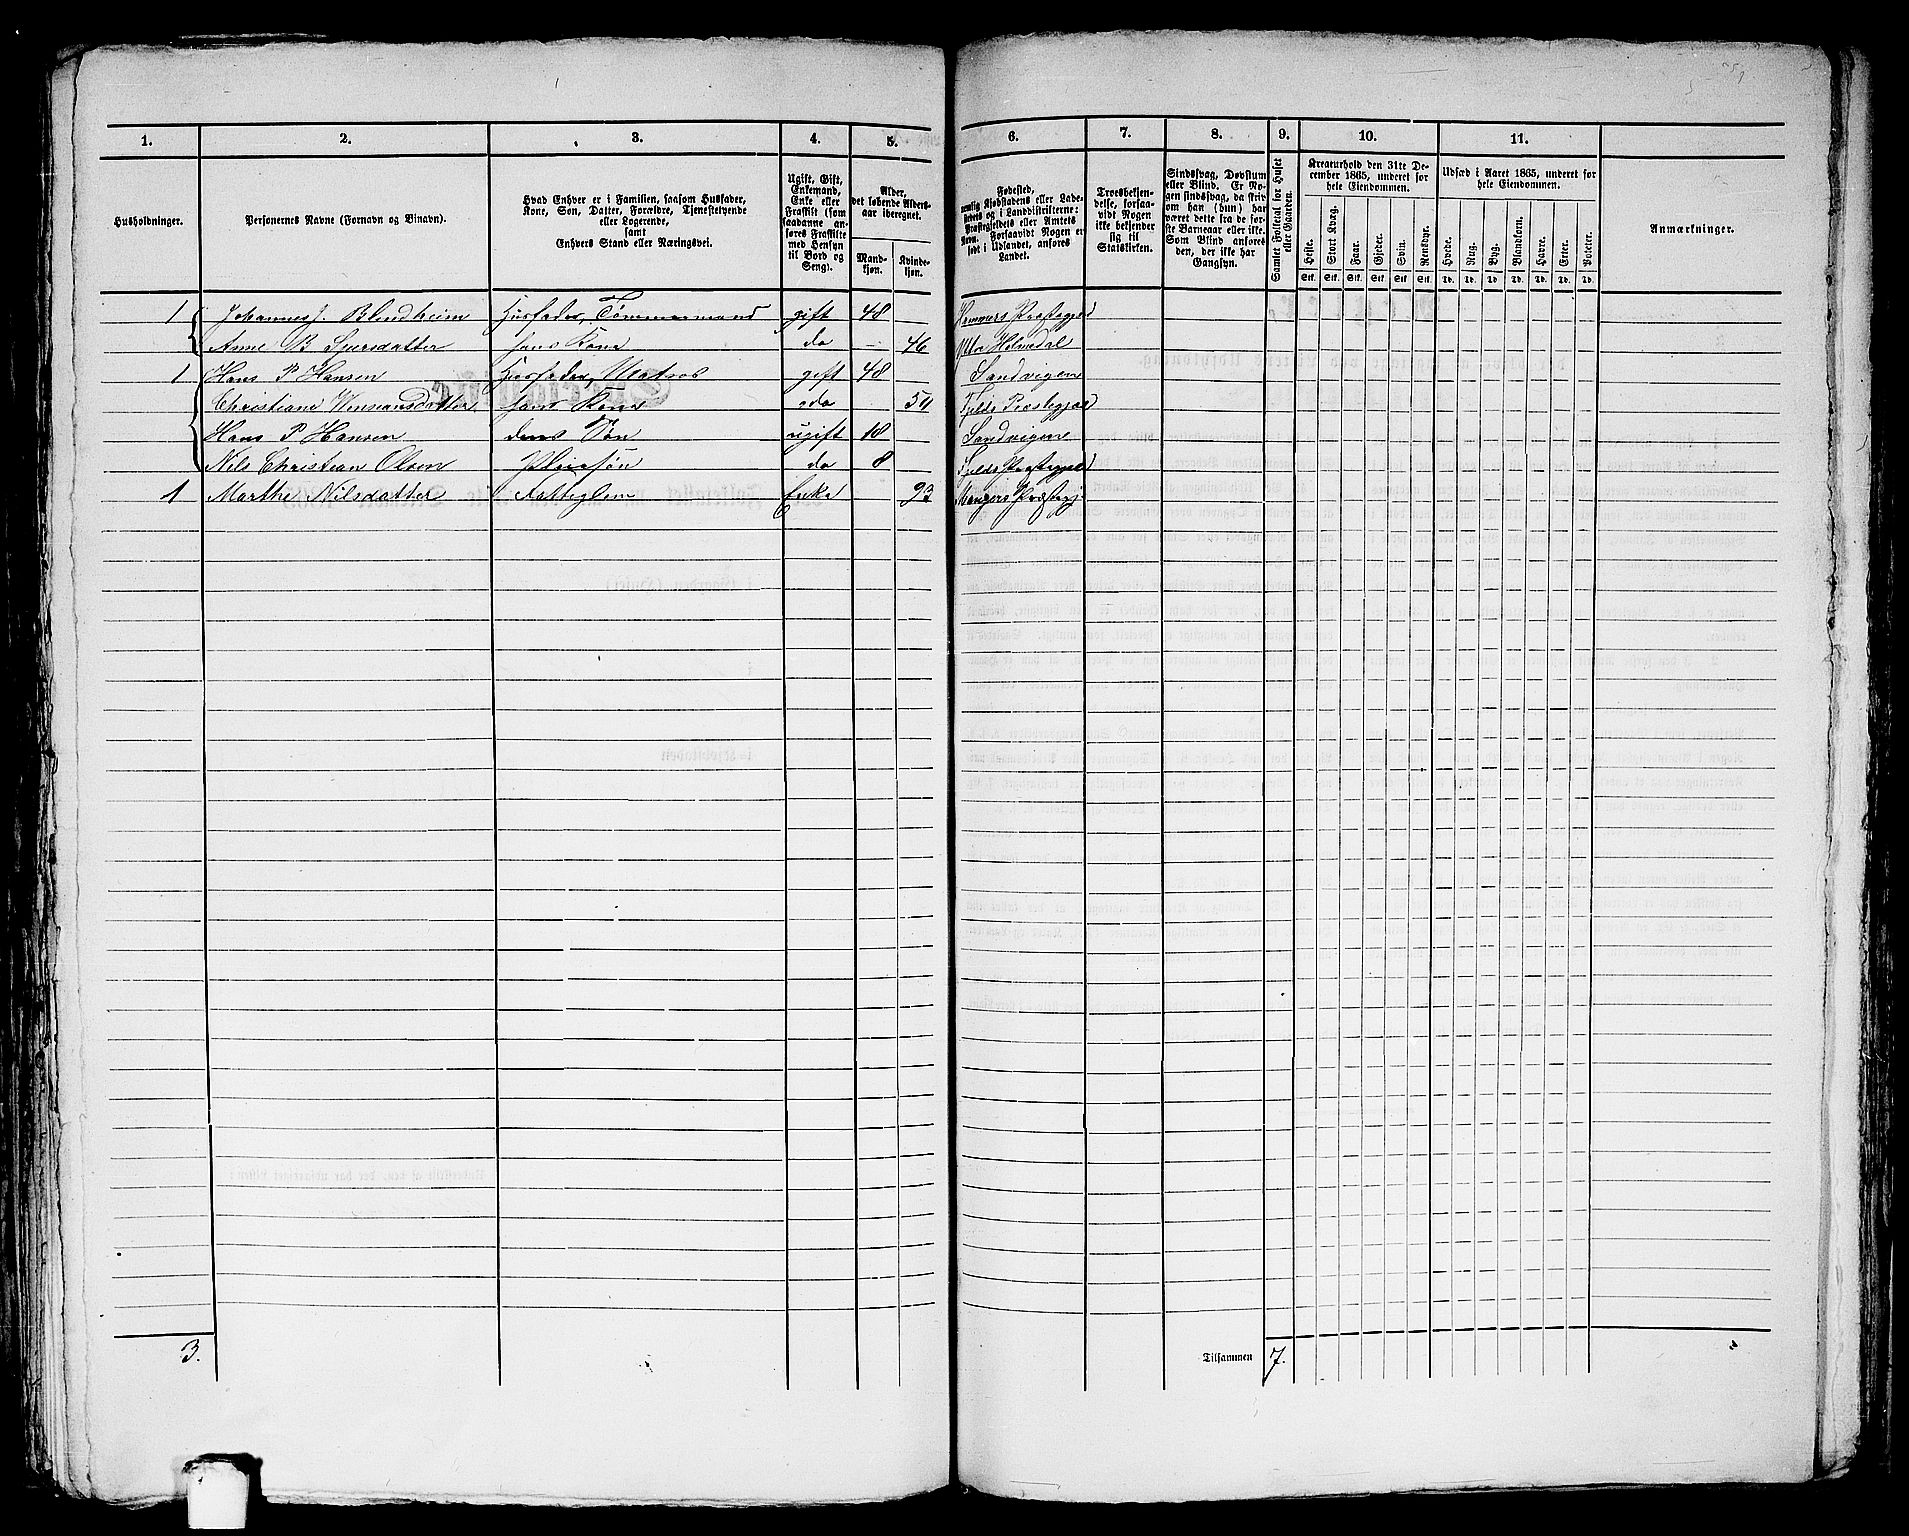 1. 2. 3. 4. 5. 6. 7. 8. 9. 10. 11.
Husholdninger.
Personernes Navne (Fornavn og Binavn).
Hvad Enhver er i Familien, saasom Husfader,
Kone, Søn, Datter, Forældre, Tjenestetyende
eller Logerende,
samt
Enhvers Stand eller Næringsvei.
Ugift, Gift,
Enkemand,
Enke eller
Fraskilt (som
saadanne an-
føres Fraskilte
med Hensyn
til Bord og
Seng).
Alder,
det løbende Alders-
aar iberegnet.
Mand-
kjøn.
Kvinde-
kjøn.
Fødested,
nemlig Kjøbstadens eller Lade-
stedets og i Landdistrikterne:
Præstegjeldets eller Amtets
Navn. Forsaavidt Nogen er
født i Udlandet, anføres
Landet.
Troesbekjen-
delse, forsaa-
vidt Nogen
ikke bekjender
sig til
Statskirken.
Sindssvag, Døvstum
eller Blind. Er No-
gen sindssvag, da skriv
om han (hun) har
været dette fra de før-
ste Barneaar eller ikke.
Som Blind anføres
den, der ikke har
Gangsyn.
Samlet Folketal for Huset
eller Gaarden.
Kreaturhold den 31te De-
cember 1865, underet for
hele Eiendommen.
Heste. Stort Kvæg. Faar. Gjeder. Svin. Rensdyr.
Stk. Stk. Stk. Stk. Stk. Stk.
Udsæd i Aaret 1865, underet for
hele Eiendommen.
Hvede. Rug. Byg. Blandkorn. Havre. Erter. Poteter.
Td. Td. Td. Td. Td. Td. Td.
Anmærkninger.
1 Johannes J. Blindheim Husfader, Tømmermand gift 48 Præstegjed
Anne B Sjursdatter hans Kone do 46 Ytre Holmedal
1 Hans P Hansen Husfader, Matros gift 48 Sandvigen
Christiane hans Kone do Fjelds Præstegjed
Hans P Hansen deres Søn ugift 18 Sandvigen
Nils Christian Olsen Pleiesøn do 8 Fjelds Præstegjed
1 Marthe Nilsdatter Fattiglem Enke 93 Mangers Præstegj.
3. Tilsammen 7.